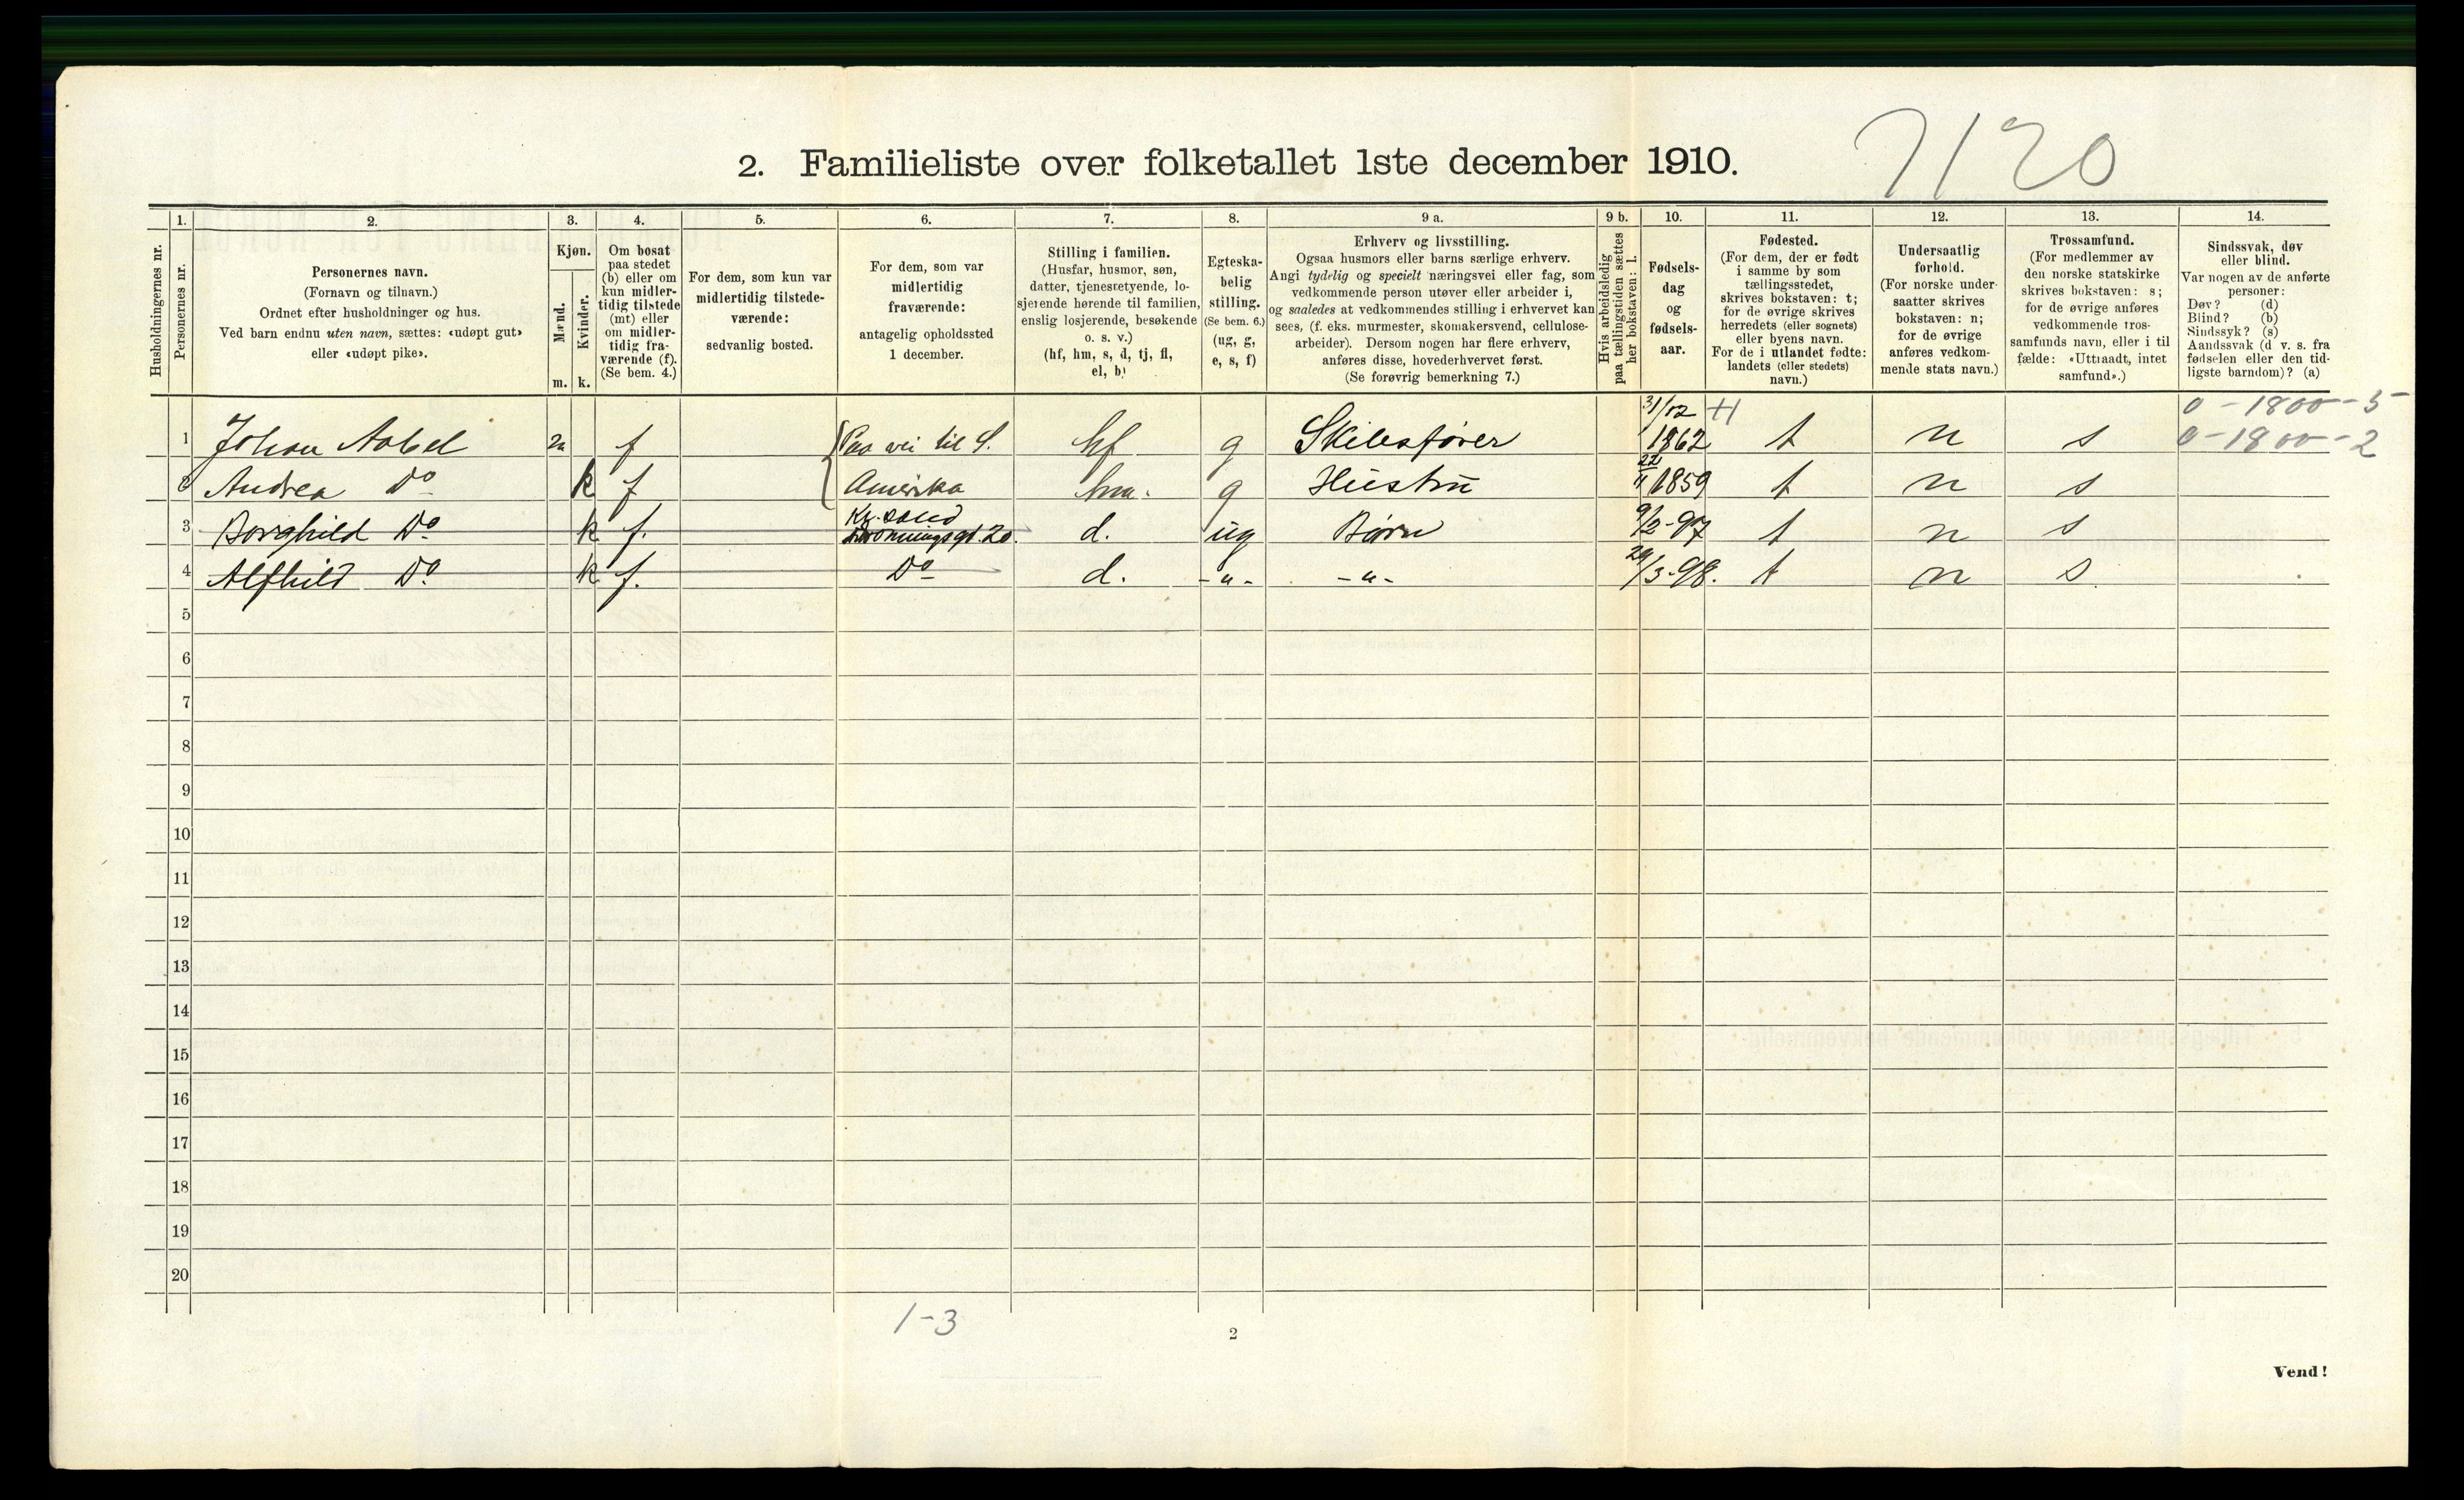 7120
2. Familieliste over folketallet 1ste december 1910.
Husholdningernes nr.
1.
Personernes nr.
2.
Personernes navn.
(Fornavn og tilnavn.)
Ordnet efter husholdninger og hus.
Ved barn endnu uten navn, sættes: «udøpt gut»
eller «udøpt pike».
3.
Kjøn.
Mænd.
Kvinder.
m. k.
4.
Om bosat
paa stedet
(b) eller om
kun midler-
tidig tilstede
(mt) eller
om midler-
tidig fra-
værende (f).
(Se bem. 4.)
5.
For dem, som kun var
midlertidig tilstede-
værende:
sedvanlig bosted.
6.
For dem, som var
midlertidig
fraværende:
antagelig opholdssted
1 december.
7.
Stilling i familien.
(Husfar, husmor, søn,
datter, tjenestetyende, lo-
sjerende hørende til familien,
enslig losjerende, besøkende
o. s. v.)
(hf, hm, s, d, tj, fl,
el, b)
8.
Egteska-
belig
stilling.
(Se bem. 6.)
(ug, g,
e, s, f)
9 a.
Erhverv og livsstilling.
Ogsaa husmors eller barns særlige erhverv.
Angi tydelig og specielt næringsvei eller fag, som
vedkommende person utøver eller arbeider i,
og saaledes at vedkommendes stilling i erhvervet kan
sees, (f. eks. murmester, skomakersvend, cellulose-
arbeider). Dersom nogen har flere erhverv,
anføres disse, hovederhvervet først.
(Se forøvrig bemerkning 7.)
9 b.
Hvis arbeidsledig
paa tællingstiden sættes
her bokstaven: l.
10.
Fødsels-
dag
og
fødsels-
aar.
11.
Fødested.
(For dem, der er født
i samme by som
tællingsstedet,
skrives bokstaven: t;
for de øvrige skrives
herredets (eller sognets)
eller byens navn.
For de i utlandet fødte:
landets (eller stedets)
navn.)
12.
Undersaatlig
forhold.
(For norske under-
saatter skrives
bokstaven: n;
for de øvrige
anføres vedkom-
mende stats navn.)
13.
Trossamfund.
(For medlemmer av
den norske statskirke
skrives bokstaven: s;
for de øvrige anføres
vedkommende tros-
samfunds navn, eller i til
fælde: «Uttraadt, intet
samfund».)
14.
Sindssvak, døv
eller blind.
Var nogen av de anførte
personer:
Døv? (d)
Blind? (b)
Sindssyk? (s)
Aandssvak (d v. s. fra
fødselen eller den tid-
ligste barndom)? (a)
0-1800-5
1 Johan Aabel m f Paa vei til S. hf g Skibsfører 31/12 1862 t n s 0-1800-2
2 Andrea Do k f Amerika hm. g Hustru 22/11 1859 t n s
3 Borghild Do k f. Kr.sand Dronningsgt. 20. d. ug Børn 9/2-97 t n s
4 Alfhild Do k f. Do d. -"- -"- 29/3-98. t n s
5
6
7
8
9
10
11
12
13
14
15
16
17
18
19
20
1-3
2
Vend!